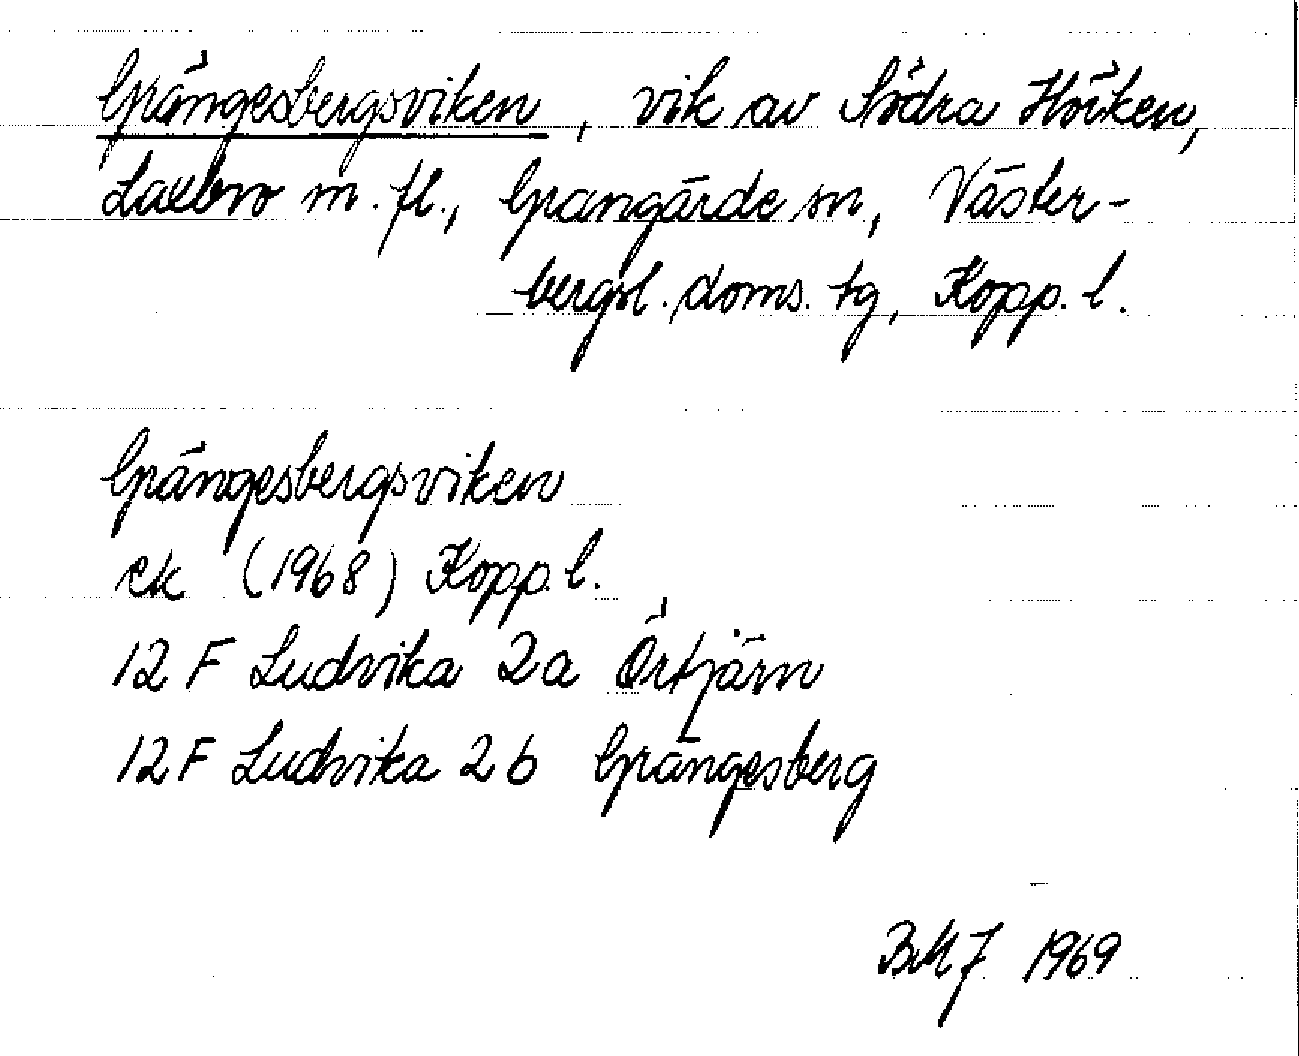 Grängesbergsviken, vik av Södra Hörken,
Laxbro m.fl., Grangärde sn, Väster-
bergsl. doms. tg, Kopp. l.
Grängesbergsviken
ek (1968) Kopp. l.
12 F Ludvika 2a Örtjärn
12 F Ludvika 2b Grängesberg
BMJ 1969